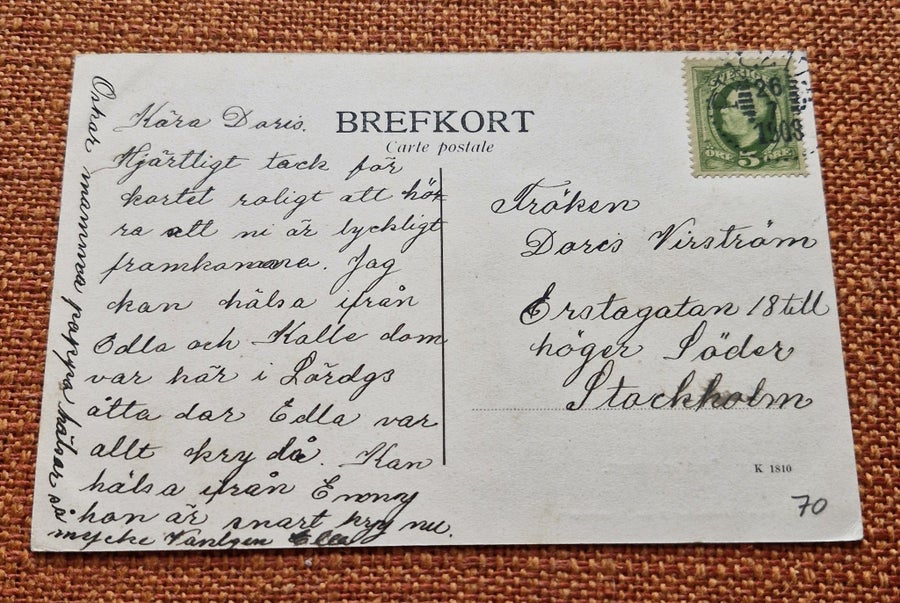 BREFKORT
Carte postale
Kära Doris.
Hjärtligt tack för
kortet roligt att hör
ra att ni är lyckligt
framkomna. Jag
kan hälsa ifrån
Edla och Kalle dom
var här i Lördgs
åtta dar Edla var
allt kry då. Kan
hälsa ifrån Emmy
hon är snart kry nu.
mycke Vänligen Ella
Oskar mamma pappa hälsar så
SVERIGE
26
1908
ÖRE 5 ÖRE
Fröken
Doris Virström
Erstagatan 18 till
höger Söder
Stockholm
K 1810
70